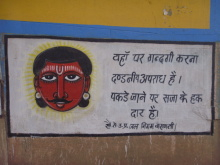 यहाँ पर गन्दगी करना
दण्डनीय अपराध है।
पकडे जाने पर सजा के हक
दार है।